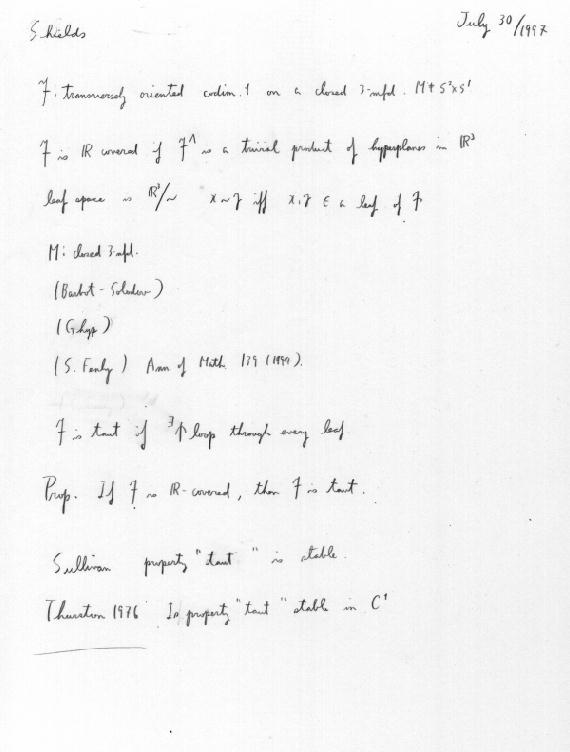 Shields
July 30/1997
F: transversely oriented codim. 1 on a closed 3-mfd. M ≠ S²×S¹
F is IR covered if F^ is a trivial product of hyperplanes in IR³
leaf space is IR³/~ x~y iff x,y ∈ a leaf of F
M: closed 3-mfd.
(Barbot - Solodov)
(Ghys)
(S. Fenly) Ann of Math. 139 (1994).
F is taut if ∃ ⋔ loop through every leaf
Prop. If F is IR-covered, then F is taut.
Sullivan property "taut" is stable.
Thurston 1976 Is property "taut" stable in C¹